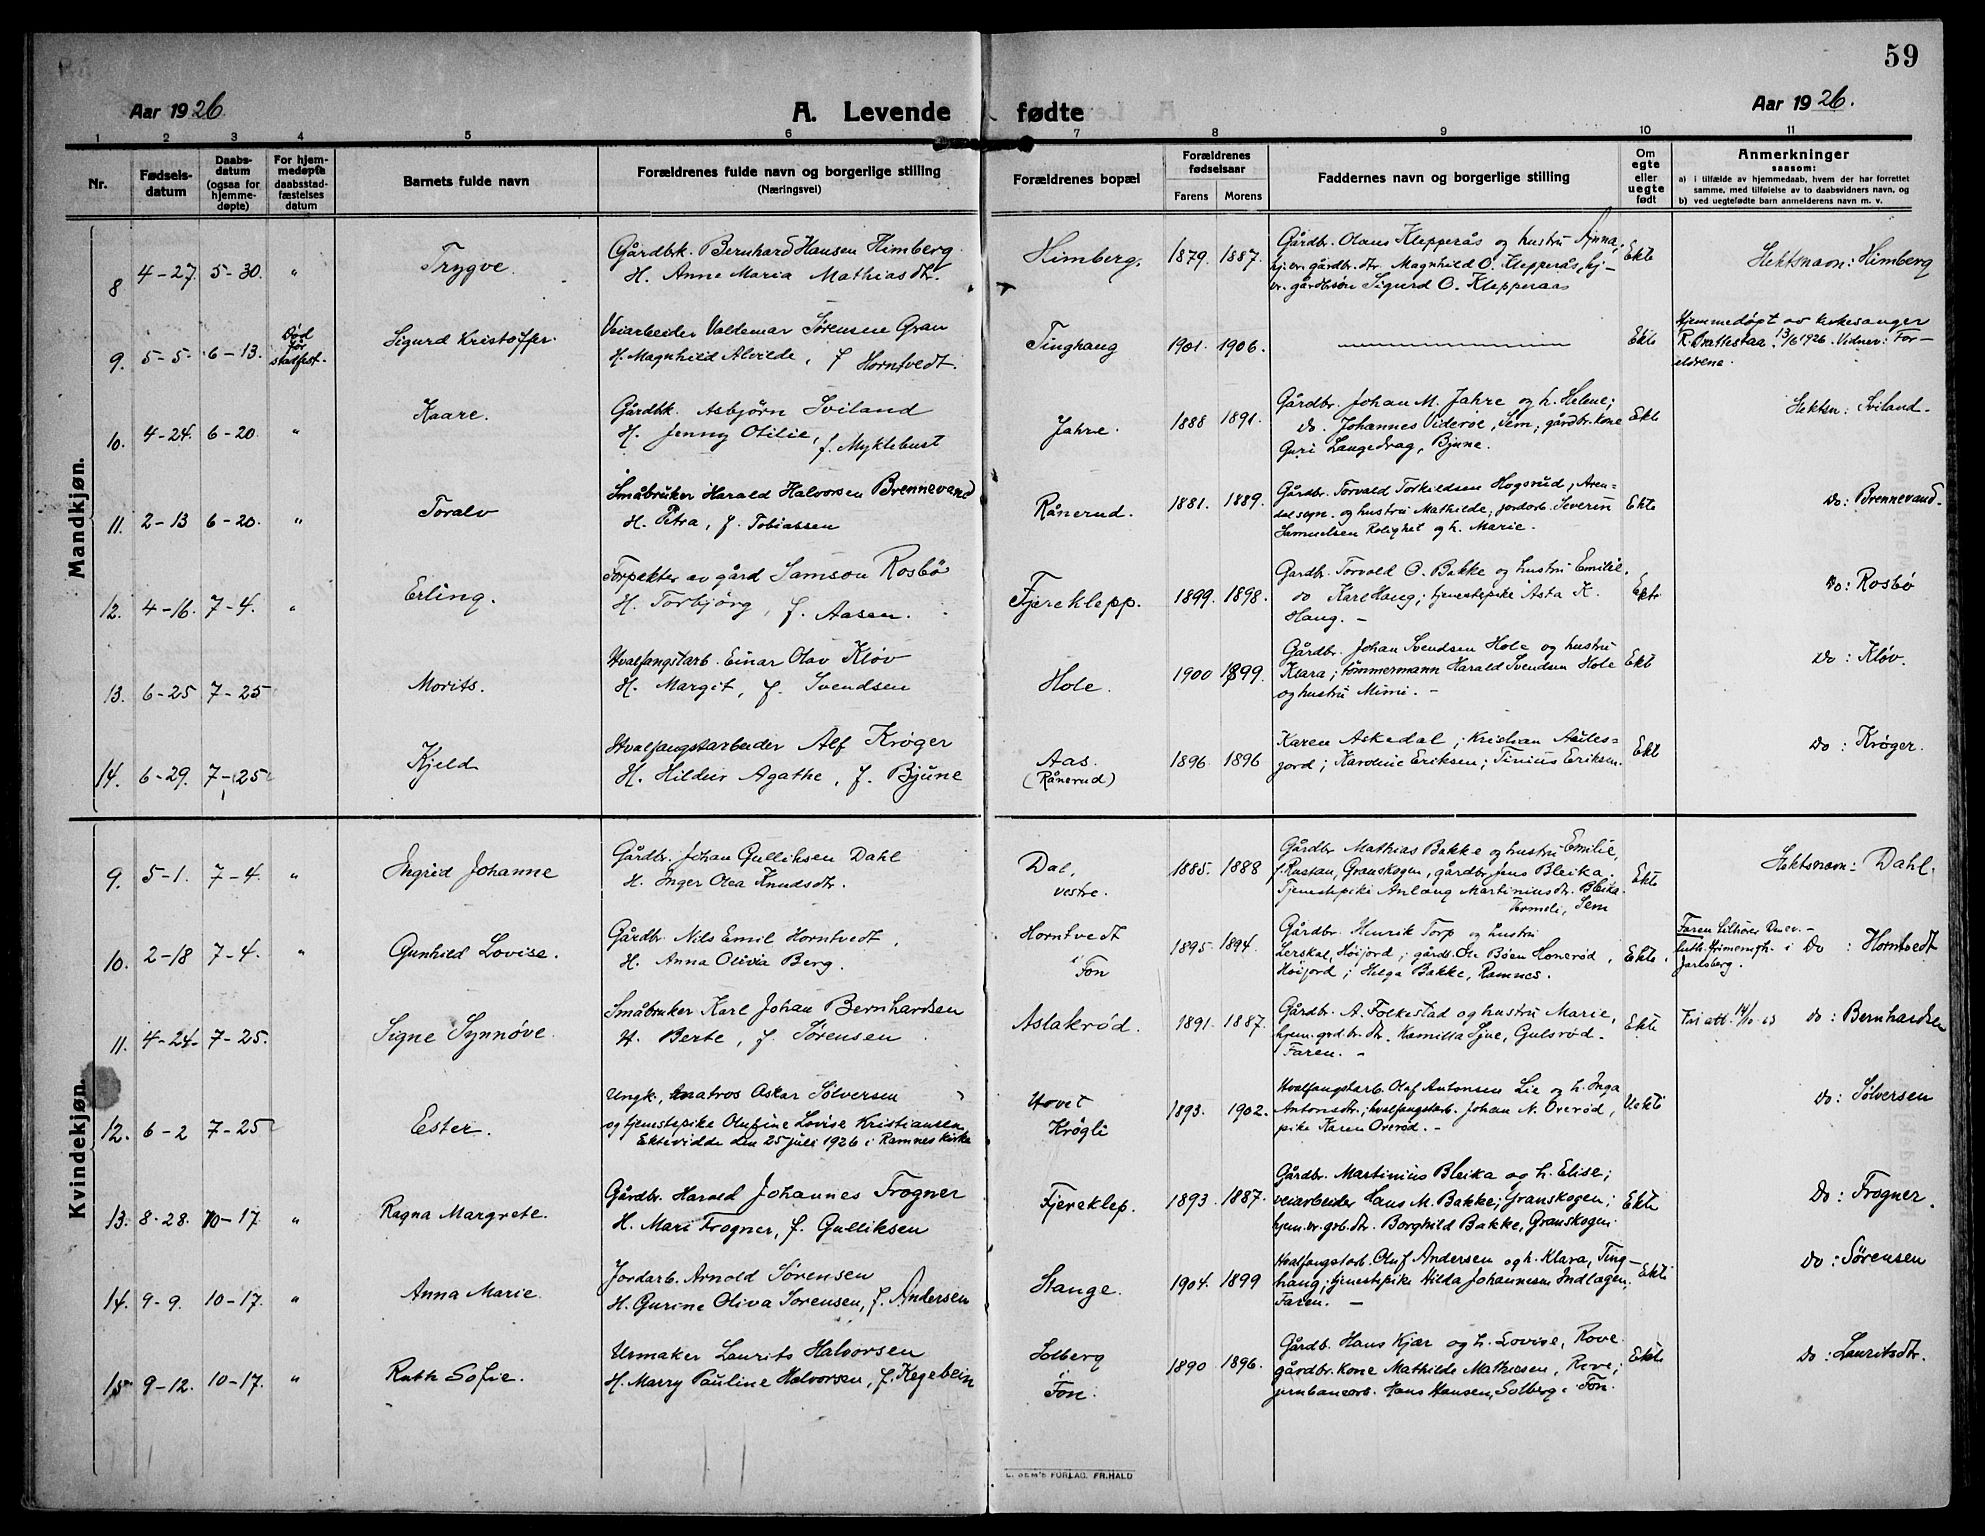 59
Aar 1926.
A. Levende fødte
Aar 1926.
1 2 3 4 5 6 7 8 9 10 11
Nr.
Fødsels-
datum
Daabs-
datum
(ogsaa for
hjemme-
døpte)
For hjem-
medøpte
daabsstad-
fæstelses
datum
Barnets fulde navn
Forældrenes fulde navn og borgerlige stilling
(Næringsvei)
Forældrenes bopæl
Forældrenes
fødselsaar
Farens Morens
Faddernes navn og borgerlige stilling
Om
egte
eller
uegte
født
Anmerkninger
saasom:
a) i tilfælde av hjemmedaab, hvem der har forrettet
samme, med tilføielse av to daabsvidners navn, og
b) ved uegtefødte barn anmelderens navn m. v.
Mandkjøn.
8 4-27. 5-30. " Trygve.
Gårdbk. Bernhard Hansen Himberg
H. Anne Maria Mathiasdtr.
Himberg. 1879. 1887.
Gårdbr. Olaus Klepperås og hustru Anna,
hj.v. gårdbr.dtr. Magnhild O. Klepperås, hj-
v. gårdbrsøn Sigurd O. Klepperaas
Ekte
Slektsnavn: Himberg
9. 5-5. 6-13.
Død
før
stadfest.
Sigurd Kristoffer.
Veiarbeider Valdemar Sørensen Gran
H. Magnhild Alvilde, f. Horntvedt.
Tinghaug 1901. 1906. Ekte
Hjemmedøpt av kirkesanger
R. Brattestaa 13/6 1926. Vidner: For-
eldrene.
10. 4-24. 6-20. " Kaare.
Gårdbk. Asbjørn Sviland
H. Jenny Otilie, f. Myklebust
Jahre. 1888 1891.
Gårdbr. Johan M. Jahre og h. Helene;
do. Johannes Viderøe, Sem; gårdbr.kone
Guri Langedrag, Bjune.
Ekte
Slektsn: Sviland.
11. 2-13 6-20. " Toralv
Småbruker Harald Halvorsen Brennevand
H. Petra, f. Tobiassen
Rånerud. 1881. 1889.
Gårdbr. Torvald Torkildsen Hogsrud, Aren-
dal sogn. og hustru Mathilde; jordarb. Severin
Samuelsen Rolighet og h. Marie.
Ekte
Do: Brennevand.
12. 4-16. 7-4. " Erling.
Forpakter av gård Samson Rosbø
H. Torbjørg, f. Aasen.
Fjereklepp. 1899. 1898.
Gardbr. Torvald O. Bakke og hustru Emilie,
do Karl Haug; tjenestepike Asta K.
Haug. -
Ekte
Do: Rosbø
13. 6-25 7-25 Morits.
Hvalfangstarb. Einar Olav Kløv
H. Margit, f. Svendsen
Hole. 1900 1899.
Gårdbr. Johan Svendsen Hole og hustru
Klara; tømmermann Harald Svendsen Hole
og hustru Mimi. -
Ekte
Do: Kløv.
14. 6-29. 7-25 Kjeld
Hvalfangstarbeider Alf Krøger
H. Hildur Agathe, f. Bjune
Aas.
(Rånerud)
1896 1896
Karen Askedal; Kristian
jord; Karoline Eriksen; Tinius Eriksen.
Ekt
Do: Krøger.
Kvindekjøn.
9. 5-1. 7-4. " Ingrid Johanne
Gårdbr. Johan Gulliksen Dahl
H. Inger Olea Knudsdtr.
Dal,
vestre.
1885. 1888
Gårdbr. Mathias Bakke og hustru Emilie,
f. Rustan, Granskogen, gårdbr. Jens Bleika.
Tjenestepike Anlaug Martiniusdtr. Bleika.
Sem
Ekte
Slektsnavn: Dahl.
10. 2-18 7-4. " Gunhild Lovise.
Gårdbr. Nils Emil Horntvedt,
H. Anna Olivia Berg.
Horntvedt
i Fon
1895. 1894.
Gårdbr. Henrik Torp og hustru
Lerskal, Høijord; Bøen Honerød,
Høijord; Helga Bakke, Ramnes.
Ekte.
Faren tilhører Den ev.-
luth. frimenigh. i
Jarlsberg.
Do: Horntvedt
11. 4-24- 7-25. Signe Synnøve.
Småbruker Karl Johan Bernhardsen
H. Berte, f. Sørensen
Aslakrød. 1891. 1887.
Gårdbr. A. Folkestad og hustru Marie,
hjem. grdbr.dtr. Kamilla Gulsrød.
Faren. -
Ekte
Fri att. 14/10 63
do: Bernhardsen
12. 6-2 7-25 Ester.
Ungk. matros Oskar Sølversen
og tjenstepike Olufine Lovise Kristiansen
Ekteviddе den 25 juli 1926 i Ramnes kirke
Hovet
Krøgli
1893. 1902.
Hvalfangstarb. Olaf Antonsen Lie og h. Inga
Antonsdtr.; hvalfangstarb. Johan N. Overød,
pike Karen Overød. -
Uekte
Do: Sølversen
13. 8-28. 10-17. " Ragna Margrete.
Gårdbr. Harald Johannes Frogner
H. Mari Frogner, f. Gulliksen
Fjereklep. 1893. 1887.
Gårdbr. Martinius Bleika og h. Elise;
veiarbeider Hans M. Bakke; Granskogen;
hjem.v. grb.dtr. Borghild Bakke, Granskogen.
Ekte
Do: Frogner.
14. 9-9. 10-17. " Anna Marie.
Jordarb. Arnold Sørensen
H. Gurine Oliva Sørensen, f. Andersen
Stange. 1904. 1899
Hvalfangstarb. Oluf Andersen og h. Klara, Ting-
haug; tjenestepike Hilda Johannesen Indlagen,
Faren. -
Ekte
Do: Sørensen
15 9-12. 10-17. " Ruth Sofie.
Urmaker Laurits Halvorsen
H. Marry Pauline Halvorsen, f. Kegebein
Solberg
i
Fon.
1890 1896.
Gårdb. Hans Kjær og h. Lovise, Rove.
gårdbr.kone Mathilde Mathiesen, Rove;
jernbanearb. Hans Hansen, Solberg i Fon.
Ekte
Do: Lauritsdtr.
E. SEM'S FORLAG, FR.HALD